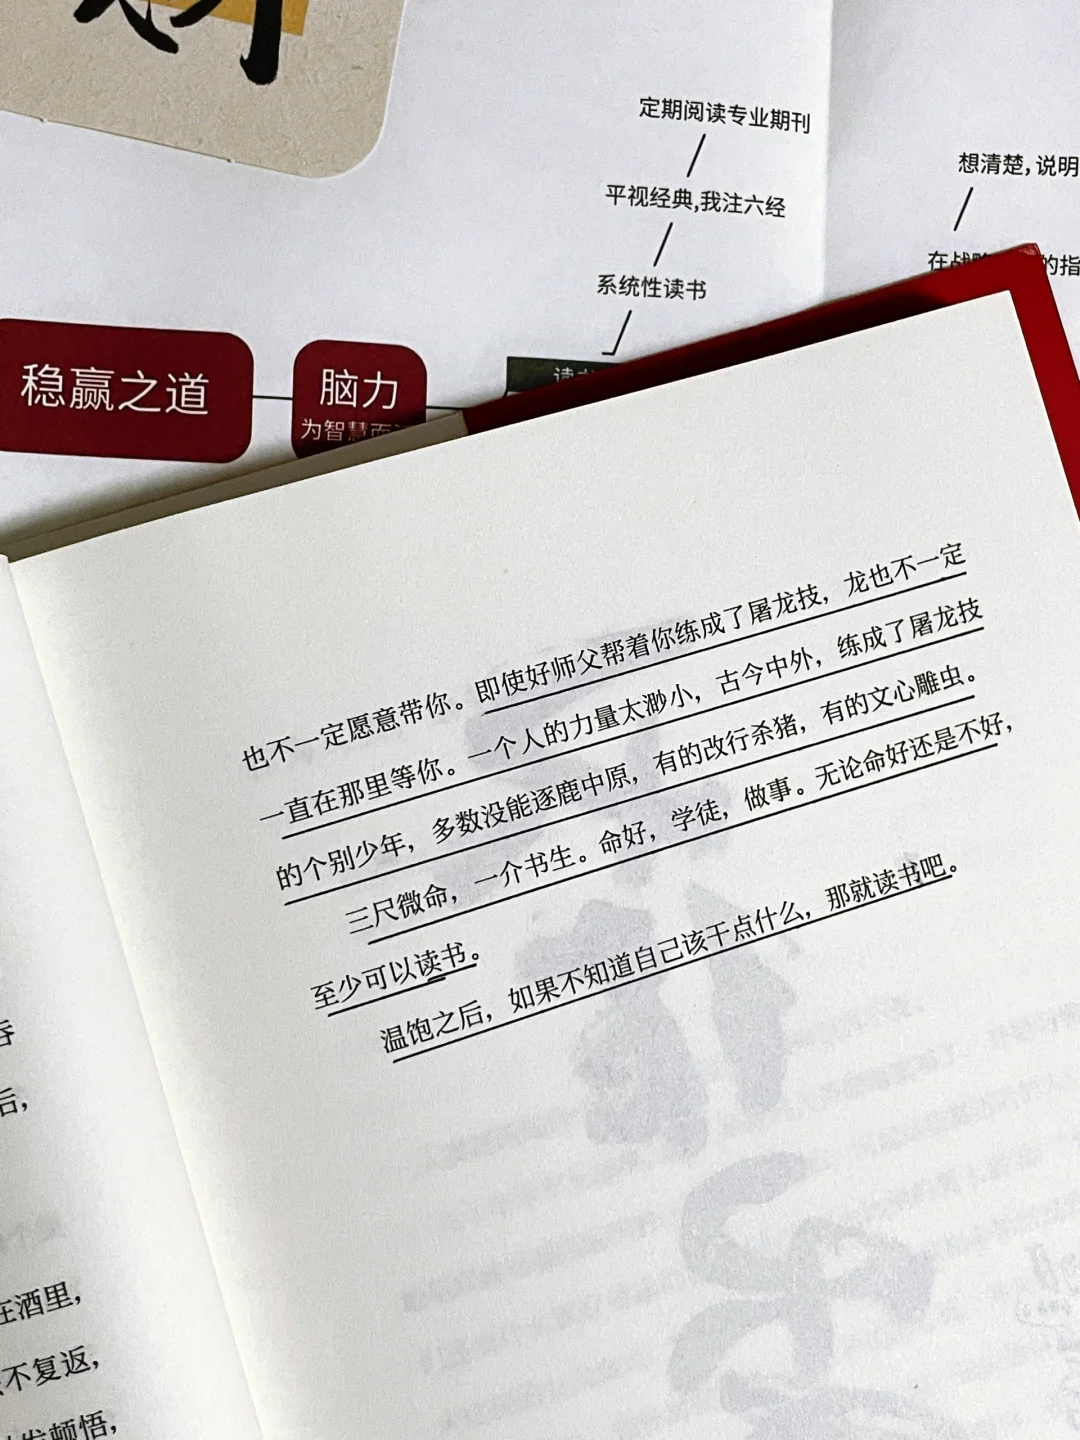 定期阅读专业期刊
平视经典,我注六经
系统性读书
想清楚，说明
的指
稳赢之道
脑力
为智慧而
也不一定愿意带你。即使好师父帮着你练成了屠龙技，龙也不一定
一直在那里等你。一个人的力量太渺小，古今中外，练成了屠龙技
的个别少年，多数没能逐鹿中原，有的改行杀猪，有的文心雕虫。
三尺微命，一介书生。命好，学徒，做事。无论命好还是不好，
至少可以读书。
温饱之后，如果不知道自己该干点什么，那就读书吧。
后，
在酒里，
不复返，
顿悟，